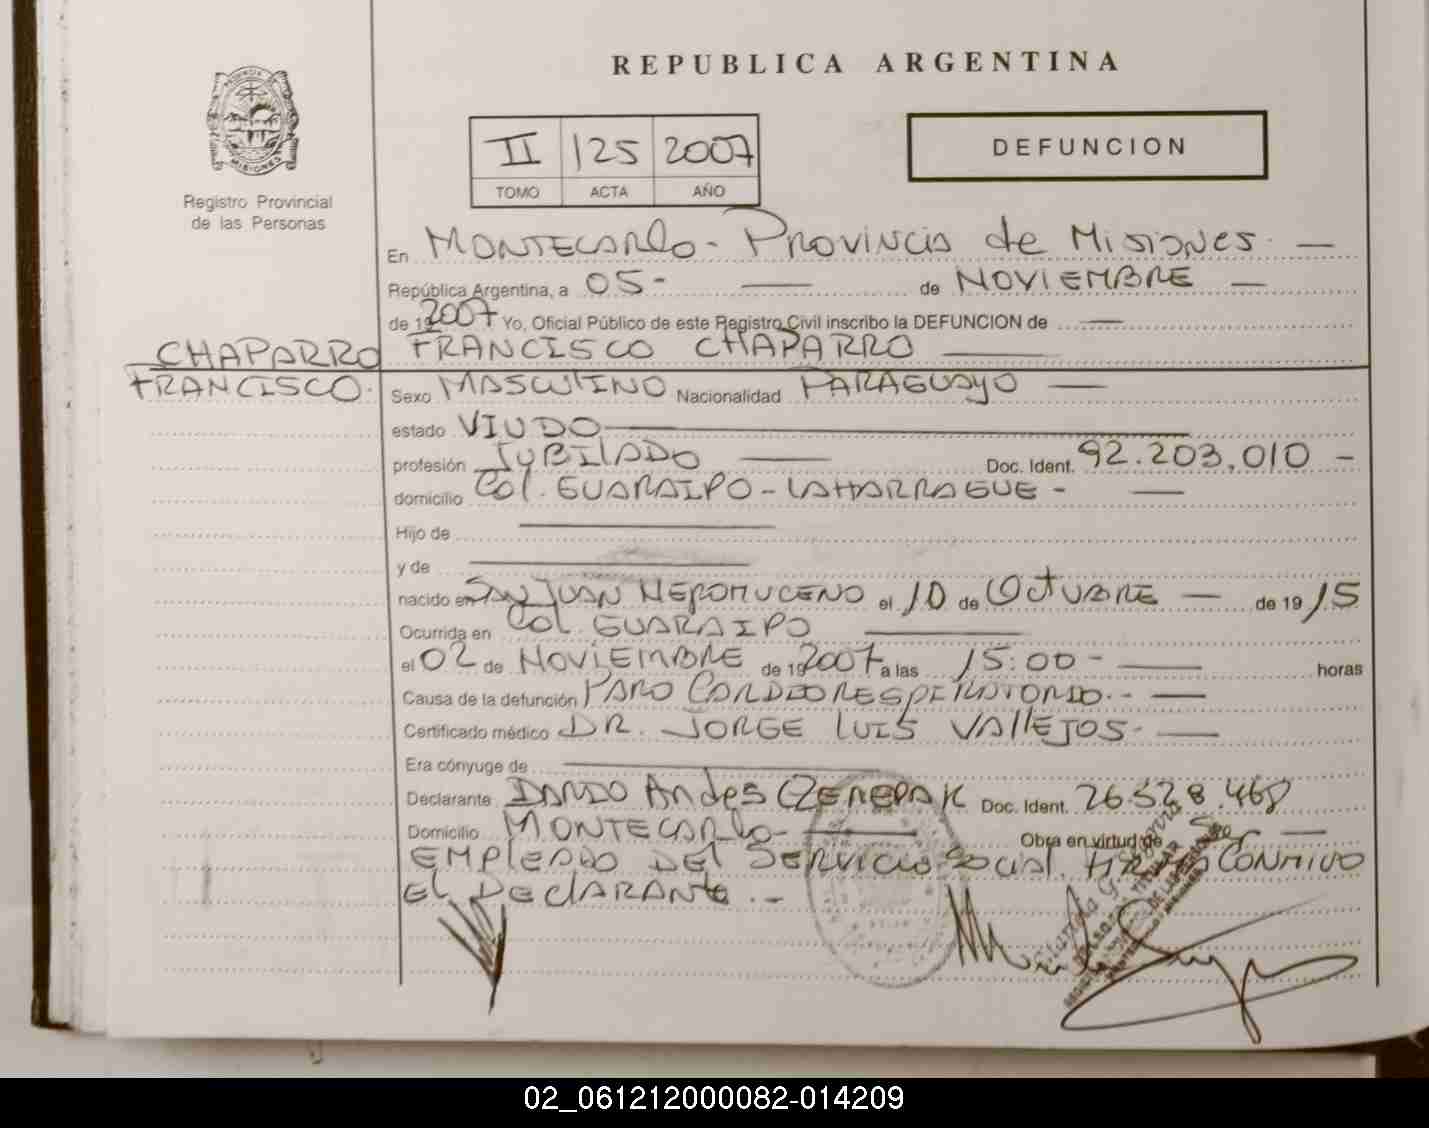 REPUBLICA ARGENTINA
PROVINCIA DE MISIONES
Registro Provincial
de las Personas
II 125 2007
TOMO ACTA AÑO
DEFUNCION
En MONTECARLO - PROVINCIA de MISIONES. —
República Argentina, a 05 - — de NOVIEMBRE —
de 192007 Yo, Oficial Público de este Registro Civil inscribo la DEFUNCION de —
CHAPARRO FRANCISCO CHAPARRO —
FRANCISCO. Sexo MASCULINO Nacionalidad PARAGUAYO —
estado VIUDO —
profesión JUBILADO — Doc. Ident. 92.203.010 -
domicilio Col. GUARAIPO - LAHARRAGUE - —
Hijo de —
y de —
nacido en SAN JUAN NEPOMUCENO el 10 de OCTUBRE — de 1915
Ocurrida en Col. GUARAIPO —
el 02 de NOVIEMBRE de 192007 a las 15:00 - — horas
Causa de la defunción PARO CARDIORESPIRATORIO.- —
Certificado médico DR. JORGE LUIS VALLEJOS - —
Era cónyuge de —
Declarante Andes Doc. Ident.
Domicilio MONTECARLO - — Obra en virtud de Ser —
EMPLEADO DEL SERVICIO SOCIAL. CONMIGO
El DEClARANte .-
TITULAR
02_061212000082-014209